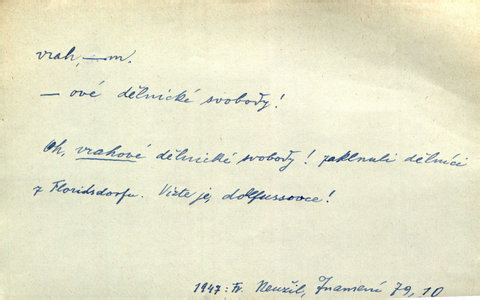 vrah, –m.
– ové dělnické svobody!
Oh, vrahové dělnické svobody! zaklnuli dělníci
z Floridsdorfu. Vizte je, dolfussovce!
1947: Fr. Neužil, Znamení 79, 10